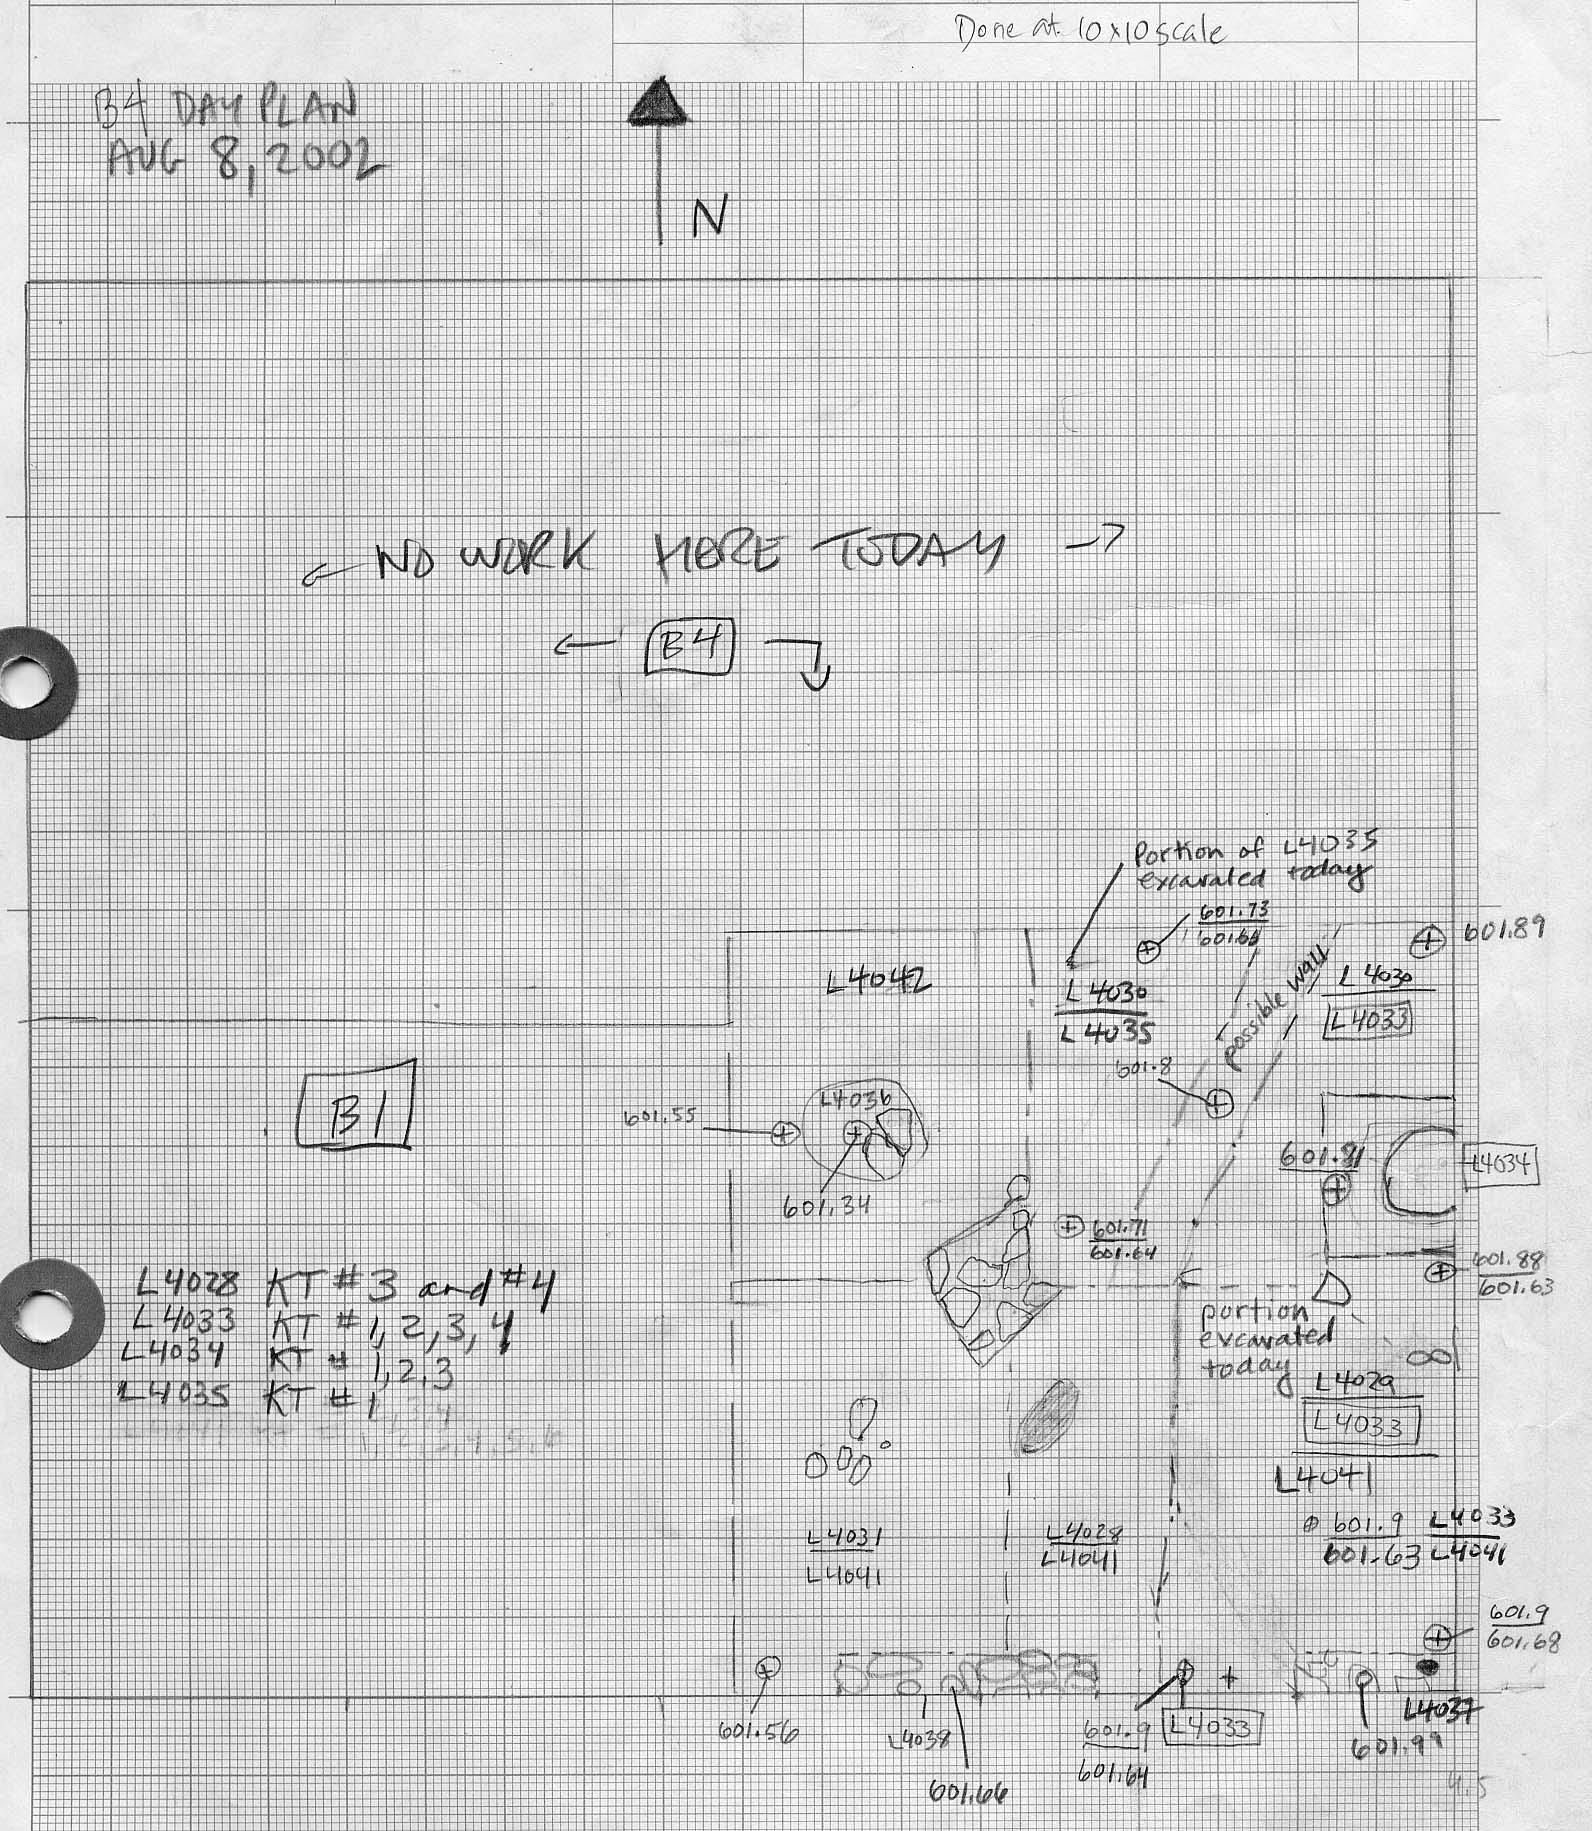 Done at 10x10 scale
B4 DAY PLAN
AUG 8, 2002
N
← NO WORK HERE TODAY →
B4
Portion of L4035
excavated today
601.73
601.66
601.89
L4042
L4030
L4035
possible wall
L4030
L4033
601.8
B1
601.55
L4036
601.34
601.81
L4034
601.71
601.64
601.88
601.63
L4028 KT #3 and #4
L4033 KT #1, 2, 3, 4
L4034 KT #1, 2, 3
L4035 KT #1
portion
excavated
today
L4029
L4033
L4041
L4031
L4041
L4028
L4041
601.9 L4033
601.63 L4041
601.9
601.68
601.56
L4038
601.66
601.9
601.64
L4033
L4037
601.99
4.5